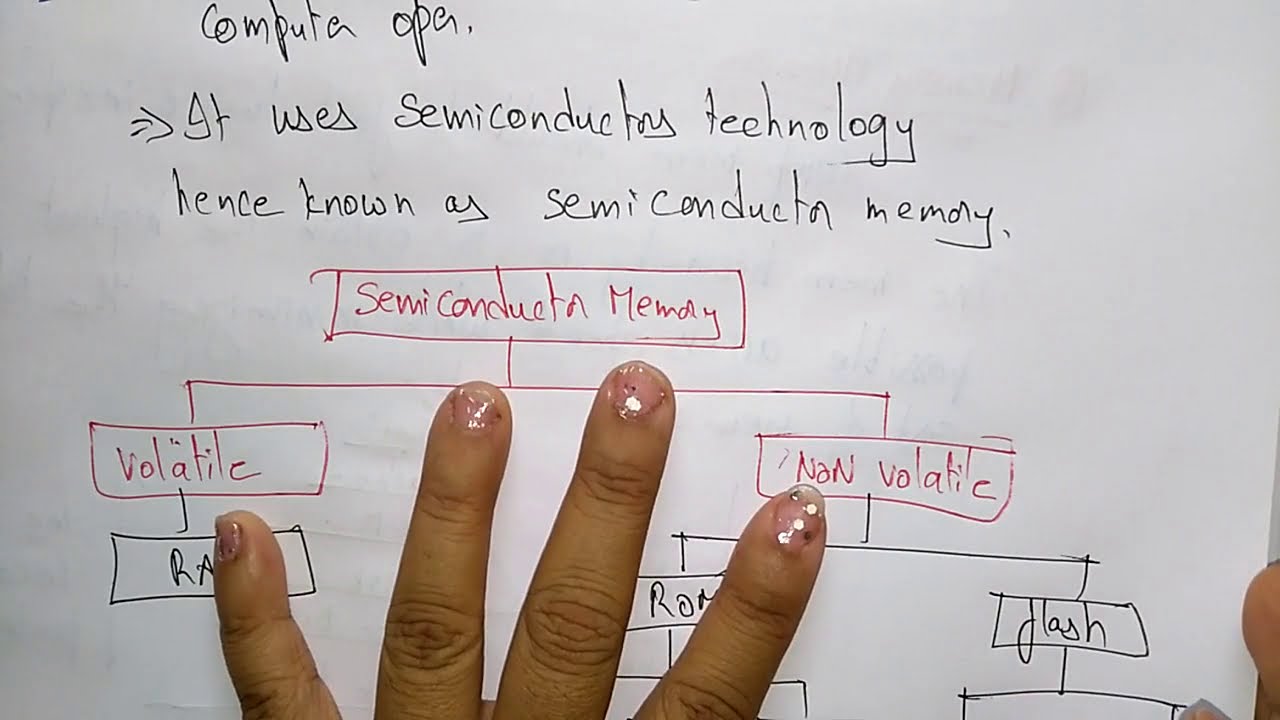 Computer oper.
⇒ It uses semiconductors technology
hence known as semiconductor memory.
Semiconductor Memory
Volatile
NON volatile
flash